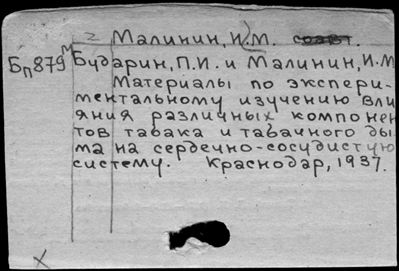 2 Малинин, И.М. соавт.
Бп879м Бударин, П.И. и Малинин, И.М
Материалы по экспери-
ментальному изучению вли
яния различных компонен
тов табака и табачного ды
ма на сердечно-сосудистую
систему. Краснодар, 1937.
х